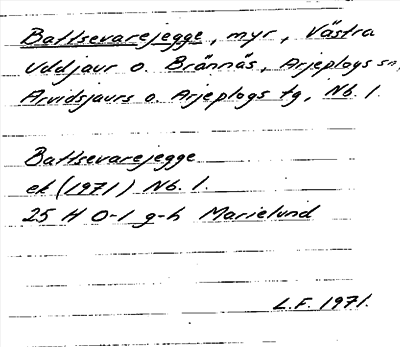 Battsevarejegge, myr, Västra
Uddjaur o. Brännäs, Arjeplogs sn,
Arvidsjaurs o. Arjeplogs tg, Nb. l.
Battsevarejegge
ek (1971) Nb. l.
25 H 0-1 g-h Marielund
L.F. 1971.